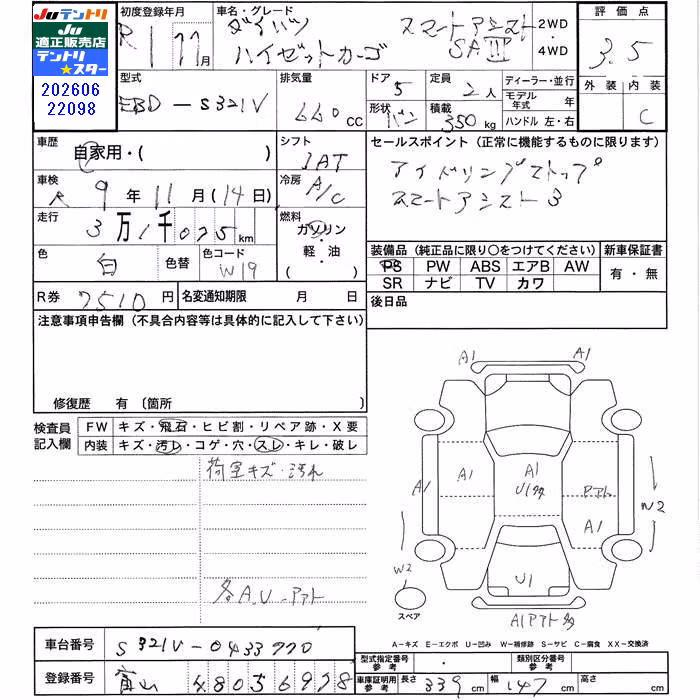 Juテントリ
Ju
適正販売店
テントリ
★スター
202606
22098
初度登録年月
R 1 11月
車名・グレード
ダイハツ
ハイゼットカーゴ
スマートアシスト
SAⅢ
2WD
・
4WD
評価点
3.5
外装 内装
C
型式
EBD-S321V
排気量
660 CC
ドア
5
形状
バン
定員
2人
積載
350kg
ディーラー・並行
モデル年式 年
ハンドル 左・右
車歴
自家用・( )
シフト
IAT
車検
R 9年11月(14日)
冷房
A/C
走行
3万1千075km
燃料
ガソリン
・
軽・油
( )
色
白
色替
色コード
W19
R券 7510円
名変通知期限 月 日
セールスポイント(正常に機能するものに限ります)
アイドリングストップ
スマートアシスト3
装備品(純正品に限り○をつけてください)
PS PW ABS エアB AW
SR ナビ TV カワ
新車保証書
有・無
後日品
注意事項申告欄(不具合内容等は具体的に記入して下さい)
修復歴 有 〔箇所 〕
検査員
記入欄
FW キズ・飛石・ヒビ割・リペア跡・X要
内装 キズ・汚レ・コゲ・穴・スレ・キレ・破レ
荷室キズ・汚れ
各A.U-アト
A1 A1
A1 A1 A1 U1多 Pアト W2
A1
W2 U1
スペア
A1アト多
A-キズ E-エクボ U-凹み W-補修跡 S-サビ C-腐食 XX-交換済
車台番号 S321V-0433770
登録番号 富山 480 5 6978
型式指定番号 参考
類別区分番号 参考
車庫証明用 参考 長さ 339cm 幅 147cm 高さ cm